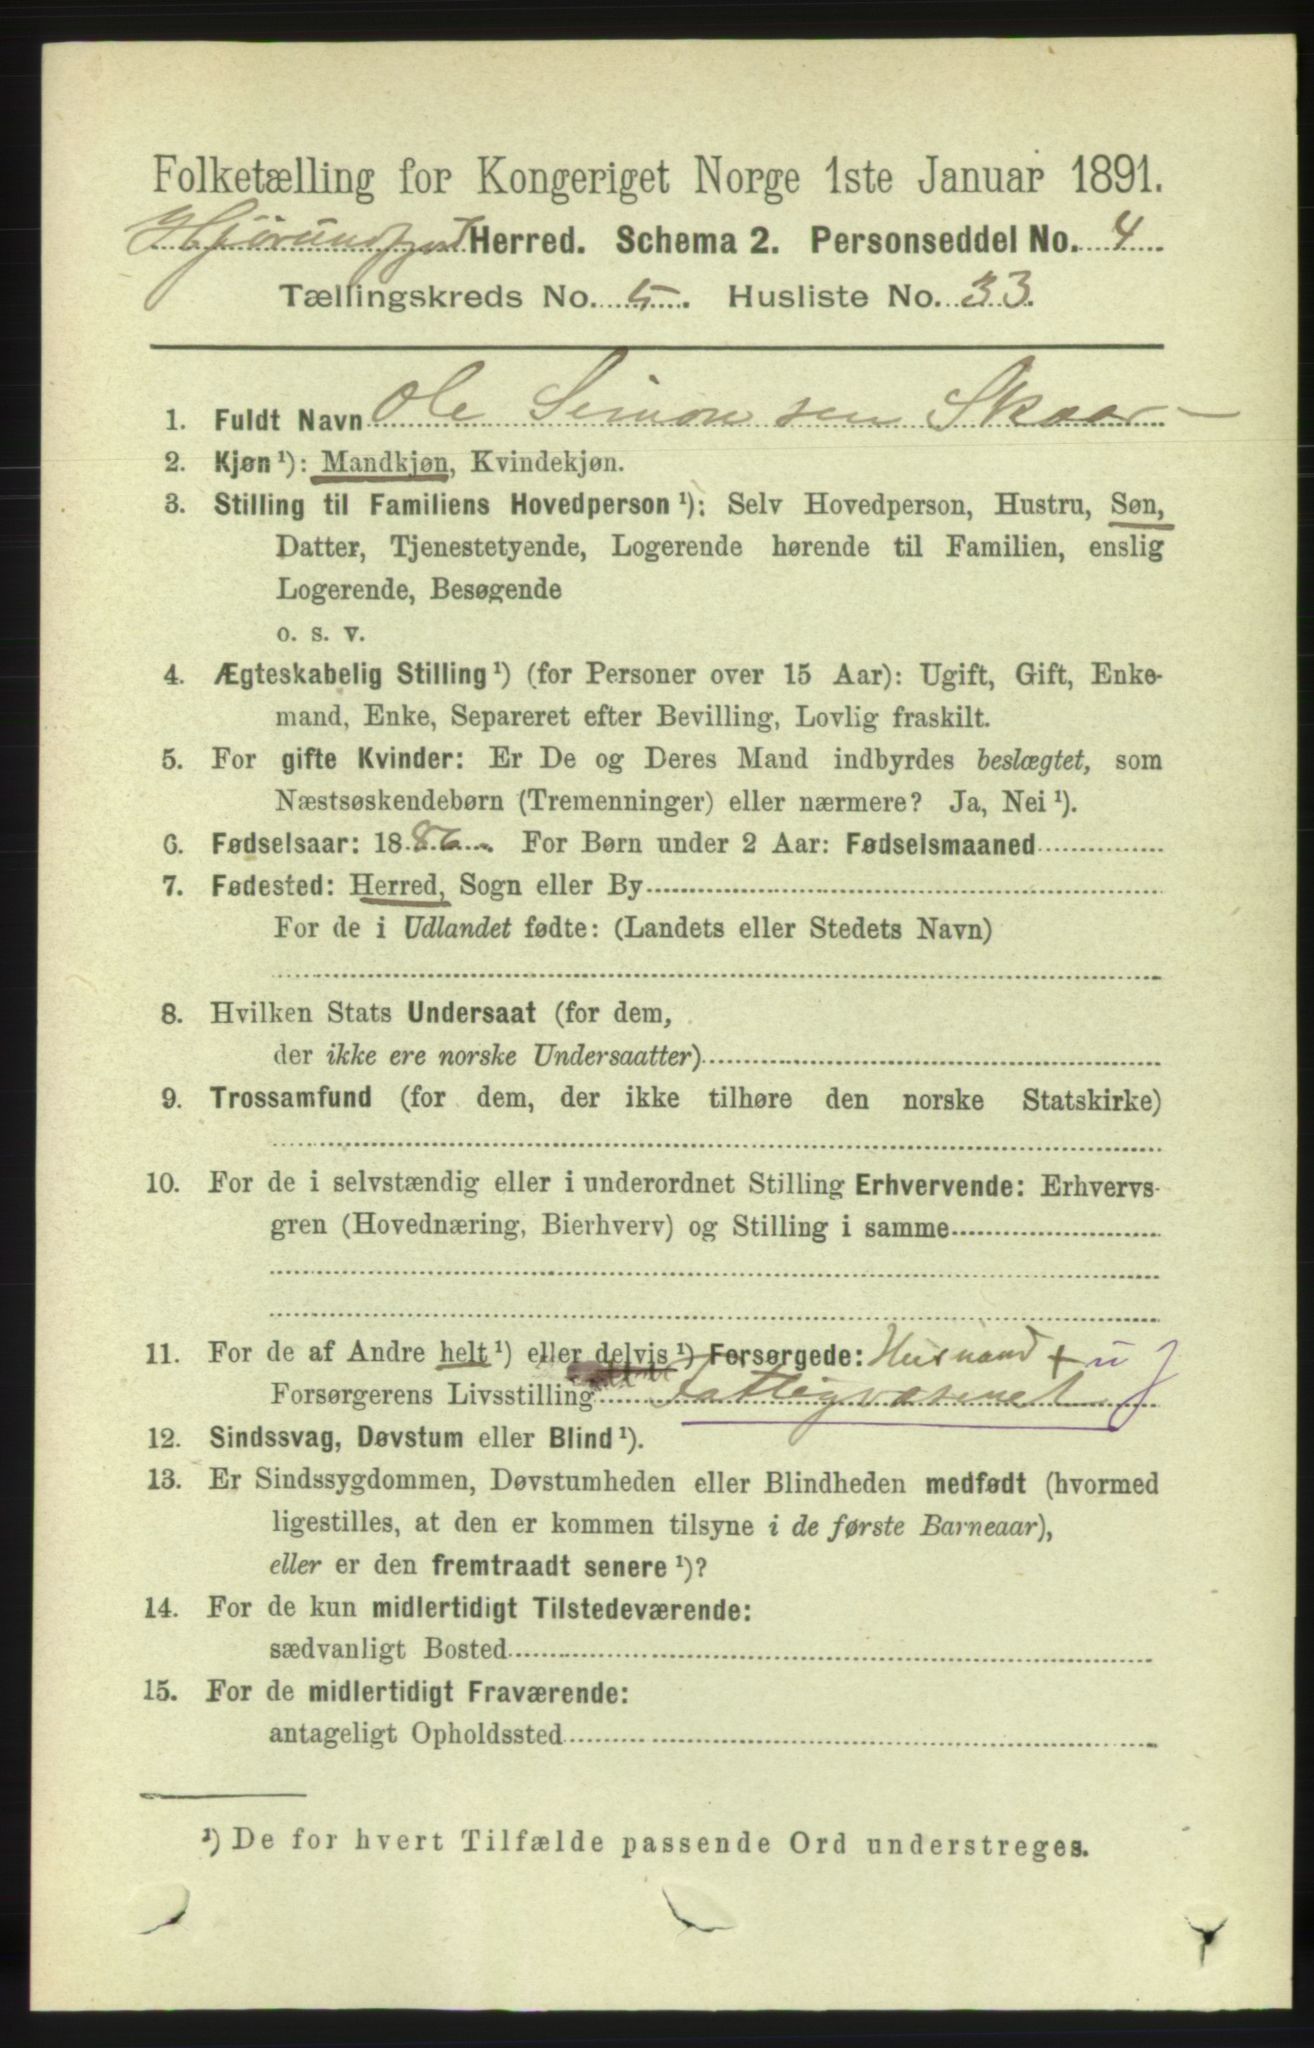 Folketælling for Kongeriget Norge 1ste Januar 1891.
Hjørundfjord Herred. Schema 2. Personseddel No. 4
Tællingskreds No. 5. Husliste No. 33.
1. Fuldt Navn Ole Simonsen Skaar
2. Kjøn ¹): Mandkjøn, Kvindekjøn.
3. Stilling til Familiens Hovedperson ¹): Selv Hovedperson, Hustru, Søn,
Datter, Tjenestetyende, Logerende hørende til Familien, enslig
Logerende, Besøgende
o. s. v.
4. Ægteskabelig Stilling ¹) (for Personer over 15 Aar): Ugift, Gift, Enke-
mand, Enke, Separeret efter Bevilling, Lovlig fraskilt.
5. For gifte Kvinder: Er De og Deres Mand indbyrdes beslægtet, som
Næstsøskendebørn (Tremenninger) eller nærmere? Ja, Nei ¹).
6. Fødselsaar: 1886. For Børn under 2 Aar: Fødselsmaaned
7. Fødested: Herred, Sogn eller By
For de i Udlandet fødte: (Landets eller Stedets Navn)
8. Hvilken Stats Undersaat (for dem,
der ikke ere norske Undersaatter)
9. Trossamfund (for dem, der ikke tilhøre den norske Statskirke)
10. For de i selvstændig eller i underordnet Stilling Erhvervende: Erhvervs-
gren (Hovednæring, Bierhverv) og Stilling i samme
11. For de af Andre helt ¹) eller delvis ¹) Forsørgede: Husmand + u J
Forsørgerens Livsstilling Fattigvæsenet
12. Sindssvag, Døvstum eller Blind ¹).
13. Er Sindssygdommen, Døvstumheden eller Blindheden medfødt (hvormed
ligestilles, at den er kommen tilsyne i de første Barneaar),
eller er den fremtraadt senere ¹)?
14. For de kun midlertidigt Tilstedeværende:
sædvanligt Bosted
15. For de midlertidigt Fraværende:
antageligt Opholdssted
¹) De for hvert Tilfælde passende Ord understreges.